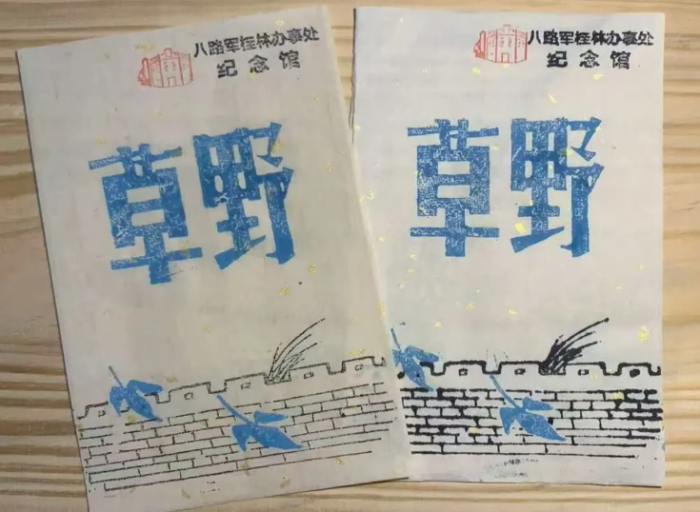 八路军桂林办事处
纪念馆
草野
八路军桂林办事处
纪念馆
草野